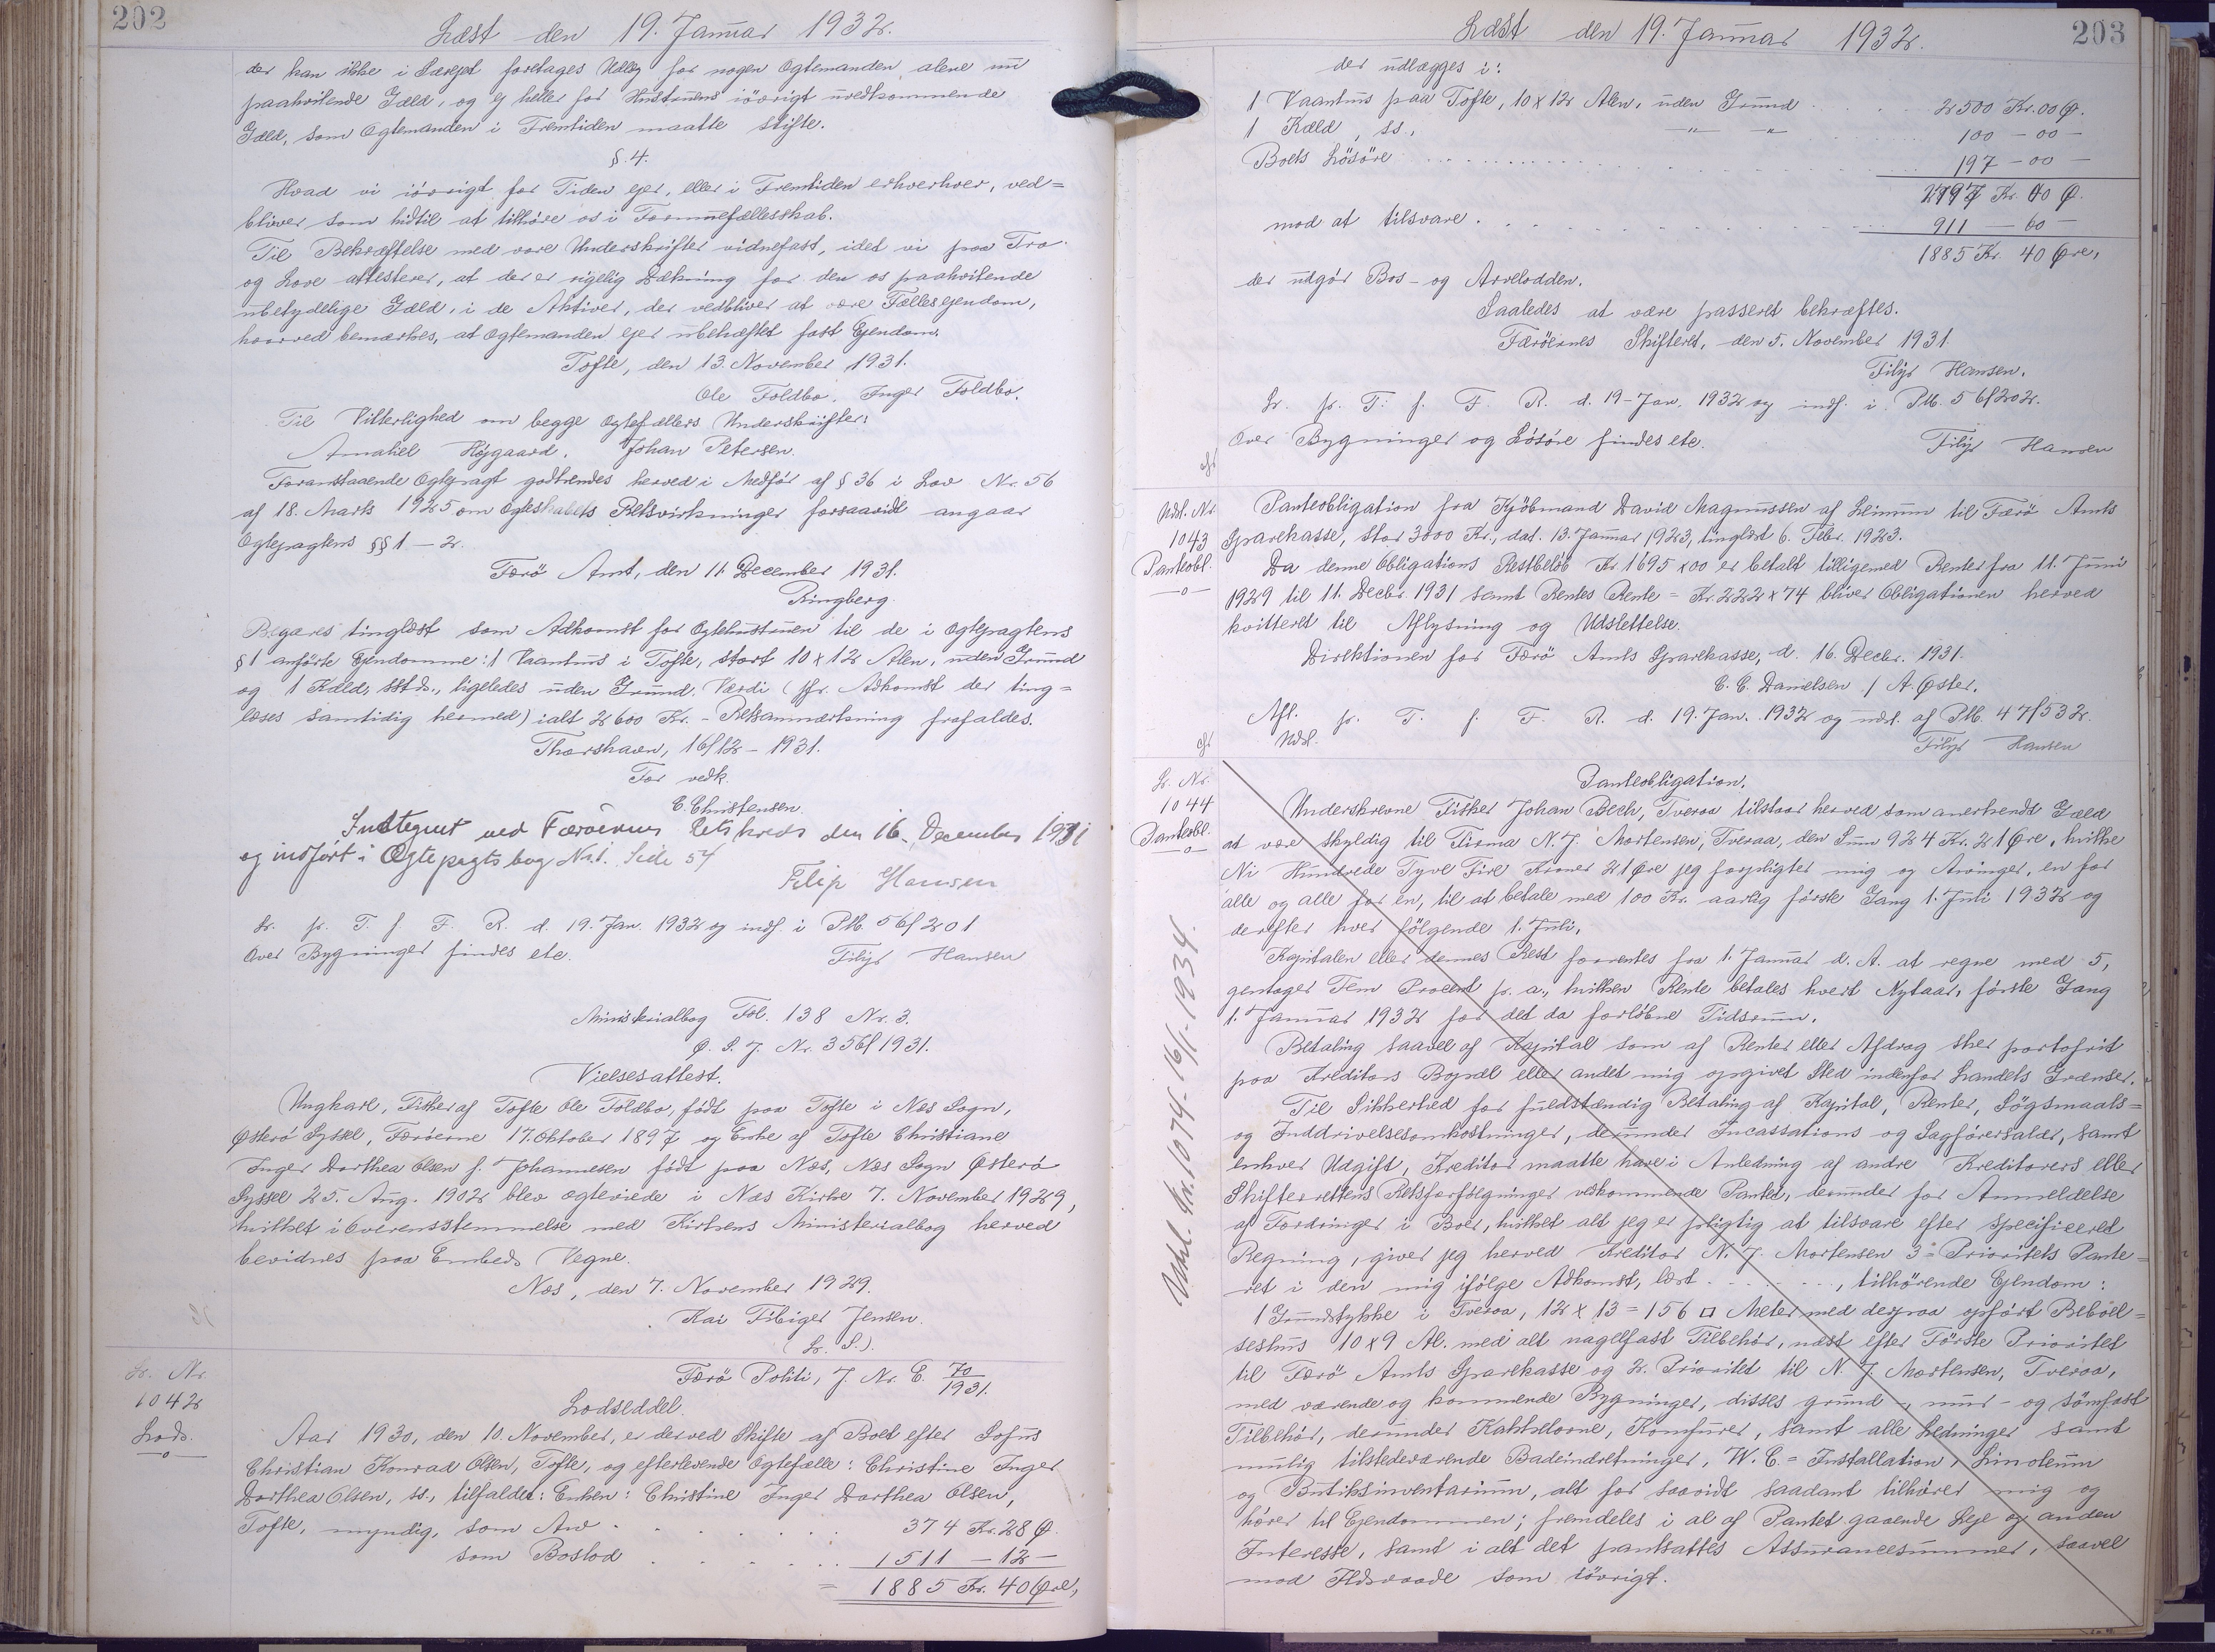 202
Læst den 19. Januar 1932.
der kan ikke i Særejet foretages Udlæg for nogen Ægtemanden alene nu
paahvilende Gæld, og ej heller for Hustruens iövrigt uvedkommende
Gæld, som Ægtemanden i Fremtiden maatte stifte.
§ 4.
Hvad vi iövrigt for Tiden ejer, eller i Fremtiden erhverver, ved=
bliver som hidtil at tilhöre os i Formuefællesskab.
Til Bekræftelse med vore Underskrifter vidnefast, idet vi paa Tro
og Love attesterer, at der er rigelig Dækning for den os paahvilende
ubetydelige Gæld, i de Aktiver, der vedbliver at være Fællesejendom,
hvorved bemærkes, at Ægtemanden ejer ubehæftet fast Ejendom.
Tofte, den 13. November 1931.
Ole Toldbo. Inger Toldbo.
Til Vitterlighed om begge Ægtefællers Underskrifter:
Amaliel Höjgaard. Johan Petersen.
Foranstaaende Ægtepagt godkendes herved i Medför af § 36 i Lov Nr. 56
af 18. Marts 1925 om Ægteskabets Retsvirkninger forsaavidt angaar
Ægtepagtens §§ 1 – 2.
Færö Amt, den 11. December 1931.
Ringberg.
Begæres tinglæst som Adkomst for Ægtehustruen til de i Ægtepagtens
§ 1 anförte Ejendomme: 1 Vaanhus i Tofte, stort 10 x 12 Alen, uden Grund
og 1 Kæld, sstds., ligeledes uden Grund. Værdi (jfr. Adkomst der ting=
læses samtidig hermed) ialt 2600 Kr. – Retsanmærkning frafaldes.
Thorshavn, 16/12 – 1931.
For vedk.
C. Christensen.
Indtegnet ved Færöernes Retskreds den 16. December 1931
og indfört i Ægtepagtsbog No 1. Side 54
Filip Hansen
Lr. p. T. f. F. R. d. 19. Jan. 1932 og indf. i Ptb. 56/201
Over Bygninger findes etc.
Filip Hansen
Ministerialbog Fol. 138 Nr. 3.
Ø. S. J. Nr. 356/1931.
Vielsesattest.
Ungkarl, Fisker af Tofte Ole Toldbo, födt paa Tofte i Næs Sogn,
Østerö Syssel, Færöerne 17. Oktober 1897 og Enke af Tofte Christiane
Inger Dorthea Olsen f. Johannesen födt paa Næs, Næs Sogn Østerö
Syssel 25. Aug. 1902 blev ægteviede i Næs Kirke 7. November 1929,
hvilket i Overensstemmelse med Kirkens Ministerialbog herved
bevidnes paa Embeds Vegne.
Næs, den 7. November 1929.
Kai Fibiger Jensen.
(L. S.).
Lr. Nr.
1042
Lods.
—o—
Færö Politi, J. Nr. C. 70/1931.
Lodseddel.
Aar 1930, den 10. November, er der ved Skifte af Boet efter Sofus
Christian Konrad Olsen, Tofte, og efterlevende Ægtefælle: Christine Inger
Dorthea Olsen, ss., tilfaldet: Enken: Christine Inger Dorthea Olsen,
Tofte, myndig, som Arv . . . . . 374 Kr. 28 Ø.
som Boslod . . . . . 1511 – 12 –
= 1885 Kr. 40 Øre,
203
Læst den 19. Januar 1932.
der udlægges i:
1 Vaanhus paa Tofte, 10 x 12 Alen, uden Grund . . . 2500 Kr. 00 Ø.
1 Kæld, ss., —"— —"— . . . 100 – 00 –
Boets Lösöre . . . . . 197 – 00 –
2797 Kr. 00 Ø.
mod at tilsvare . . . . . 911 – 60 –
1885 Kr. 40 Øre,
der udgör Bos- og Arvelodden.
Saaledes at være passeret bekræftes.
Færöernes Skifteret, den 5. November 1931.
Filip Hansen.
Lr. p. T. f. F. R. d. 19. Jan. 1932 og indf. i Ptb. 56/202.
Over Bygninger og Lösöre findes etc.
Filip Hansen
Udsl. Nr
1043
Panteobl.
—o—
Panteobligation fra Kjöbmand David Magnussen af Leimum til Færö Amts
Sparekasse, stor 3000 Kr., dat. 13. Januar 1923, tinglæst 6. Febr. 1923.
Da denne Obligations Restbelöb Kr 1695 x 00 er betalt tilligemed Renter fra 11. Juni
1929 til 11. Decbr. 1931 samt Rentes Rente = Kr. 222 x 74 bliver Obligationen herved
kvitteret til Aflysning og Udslettelse.
Direktionen for Færö Amts Sparekasse, d. 16. Decbr. 1931.
C. C. Danielsen / A. Øster.
Afl. p. T. f. F. R. d. 19. Jan. 1932 og udsl. af Ptb. 47/532.
Udsl.
Filip Hansen
Lr. Nr.
1044
Panteobl.
—o—
Udsl. Nr. 1074 - 16/1 - 1934.
Panteobligation.
Underskrevne Fisker Johan Bech, Tveraa tilstaar herved som anerkendt Gæld
at være skyldig til Firma N. J. Mortensen, Tveraa, den Sum 924 Kr. 21 Øre, hvilke
Ni Hundrede Tyve Fire Kroner 21 Øre jeg forpligter mig og Arvinger, en for
alle og alle for en, til at betale med 100 Kr. aarlig förste Gang 1. Juli 1932 og
derefter hver fölgende 1. Juli.
Kapitalen eller dennes Rest forrentes fra 1. Januar d. A. at regne med 5,
gentager Fem Procent p. a., hvilken Rente betales hvert Nytaar, förste Gang
1. Januar 1932 for det da forlöbne Tidsrum.
Betaling saavel af Kapital som af Renter eller Afdrag sker portofrit
paa Kreditors Bopæl eller andet mig opgivet Sted indenfor Landets Grænser.
Til Sikkerhed for fuldstændig Betaling af Kapital, Renter, Sögsmaals=
og Inddrivelsesomkostninger, derunder Incassations og Sagförersalær, samt
enhver Udgift, Kreditor maatte have i Anledning af andre Kreditorers eller
Skifterettens Retsforfölgninger vedkommende Pantet, derunder for Anmeldelse
af Fordringer i Boer, hvilket alt jeg er pligtig at tilsvare efter specificeret
Regning, giver jeg herved Kreditor N. J. Mortensen 3= Prioritets Pante=
ret i den mig ifölge Adkomst, læst . . . . . . , tilhörende Ejendom:
1 Grundstykke i Tveraa, 12 x 13 = 156 □ Meter med derpaa opfört Beboel=
seshus 10 x 9 Al. med alt nagelfast Tilbehör, næst efter Förste Prioritet
til Færö Amts Sparekasse og 2. Prioritet til N. J. Mortensen, Tveraa,
med værende og kommende Bygninger, disses grund-, mur- og sömfast
Tilbehör, derunder Kakkelovne, Komfurer, samt alle Ledninger samt
mulig tilstedeværende Badeindretninger, W. C. = Installation, Linoleum
og Butiksinventarium, alt for saavidt saadant tilhörer mig og
hörer til Ejendommen; fremdeles i al af Pantet gaaende Leje og anden
Interesse, samt i alt det pantsattes Assurancesummer, saavel
mod Ildsvaade som iövrigt.